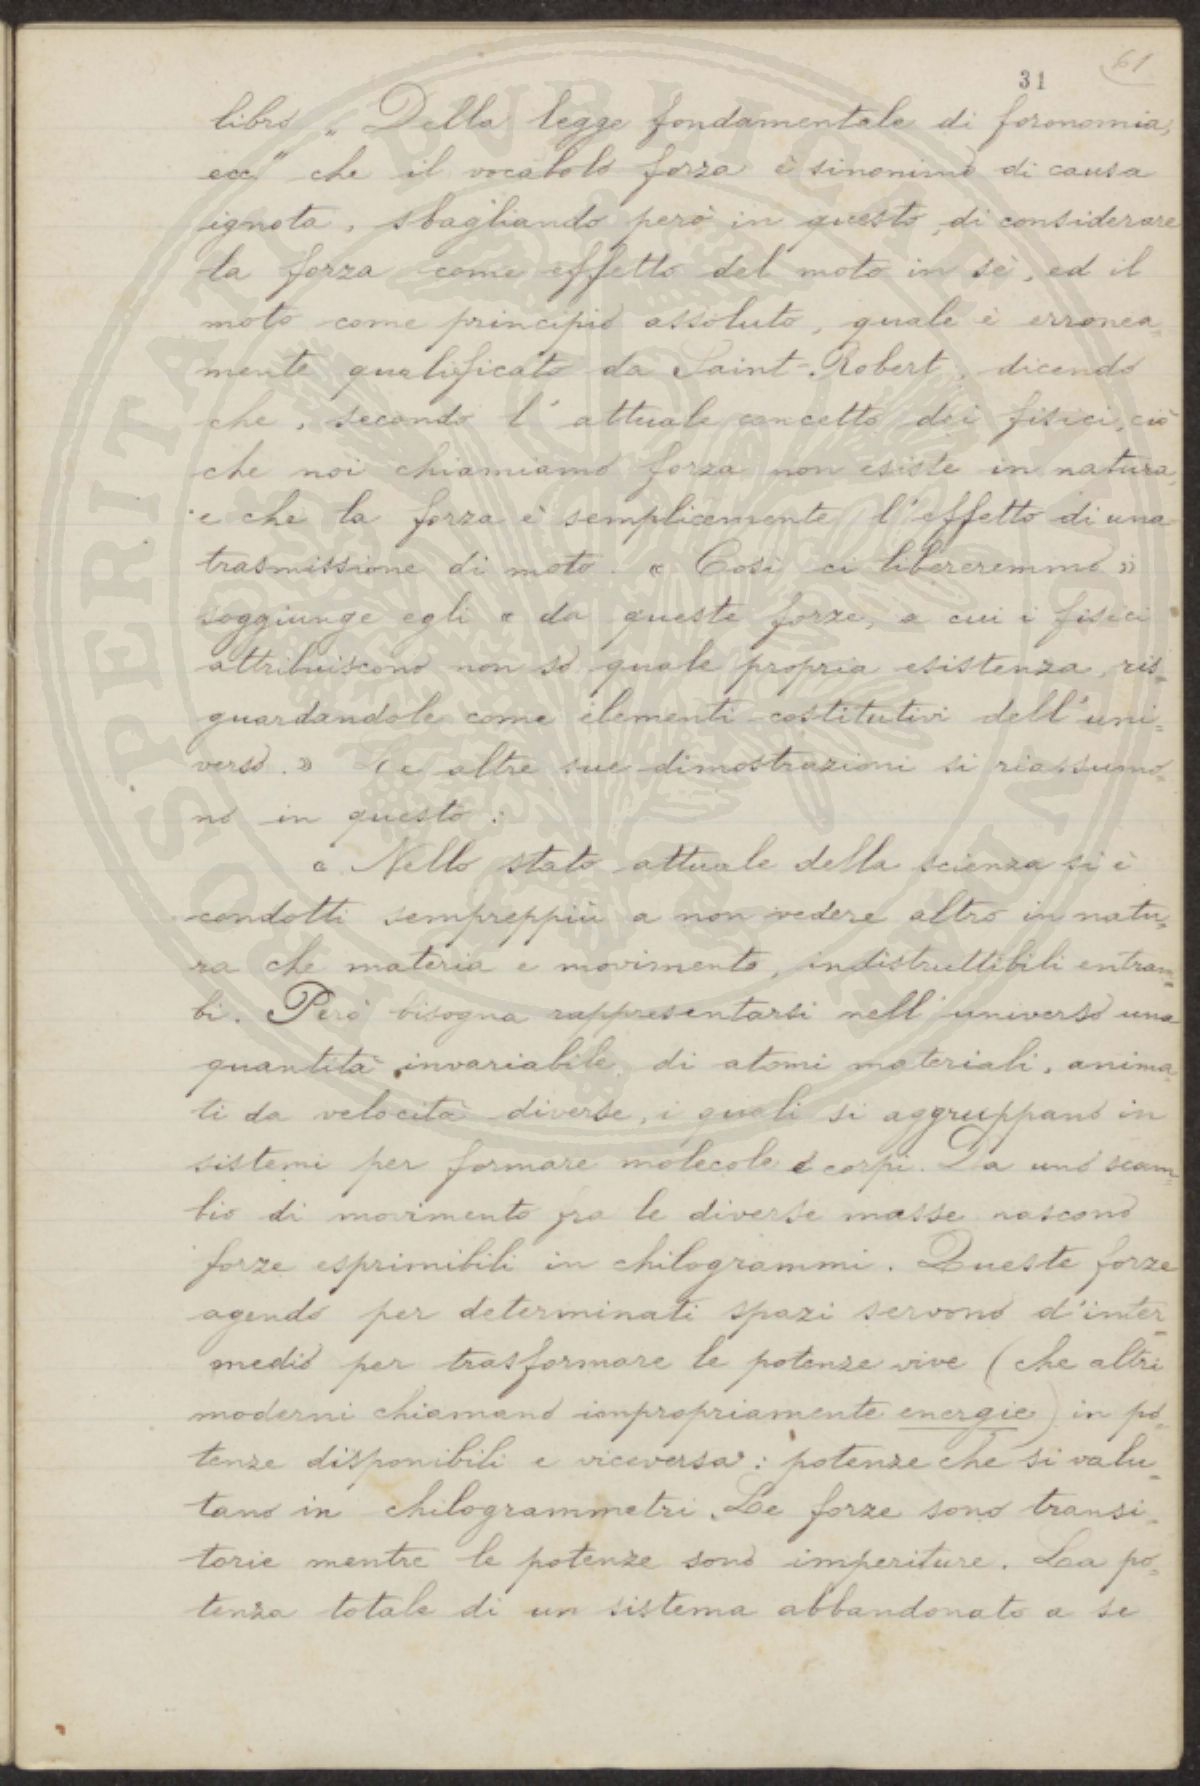 61
31
libro „ Della legge fondamentale di foronomia,
ecc" che il vocabolo forza è sinonimo di causa
ignota, sbagliando però in questo, di considerare
la forza come effetto del moto in sè, ed il
moto come principio assoluto, quale è erronea=
mente qualificato da Saint-Robert, dicendo
che, secondo l'attuale concetto dei fisici, ciò
che noi chiamiamo forza non esiste in natura,
e che la forza è semplicemente l'effetto di una
trasmissione di moto. « Così ci libereremmo »
soggiunge egli « da queste forze, a cui i fisici
attribuiscono non so quale propria esistenza, ris=
guardandole come elementi costitutivi dell'uni=
verso. » Le altre sue dimostrazioni si riassumo=
no in questo:
« Nello stato attuale della scienza si è
condotti sempreppiù a non vedere altro in natu=
ra che materia e movimento, indistruttibili entram=
bi. Però bisogna rappresentarsi nell'universo una
quantità invariabile di atomi materiali, anima=
ti da velocità diverse, i quali si aggruppano in
sistemi per formare molecole e corpi. Da uno scam=
bio di movimento fra le diverse masse nascono
forze esprimibili in chilogrammi. Queste forze
agendo per determinati spazi servono d'inter=
medio per trasformare le potenze vive (che altri
moderni chiamano impropriamente energie) in po=
tenze disponibili e viceversa: potenze che si valu=
tano in chilogrammetri. Le forze sono transi=
torie mentre le potenze sono imperiture. La po=
tenza totale di un sistema abbandonato a se
PUBLICAE
PROSPERITATI